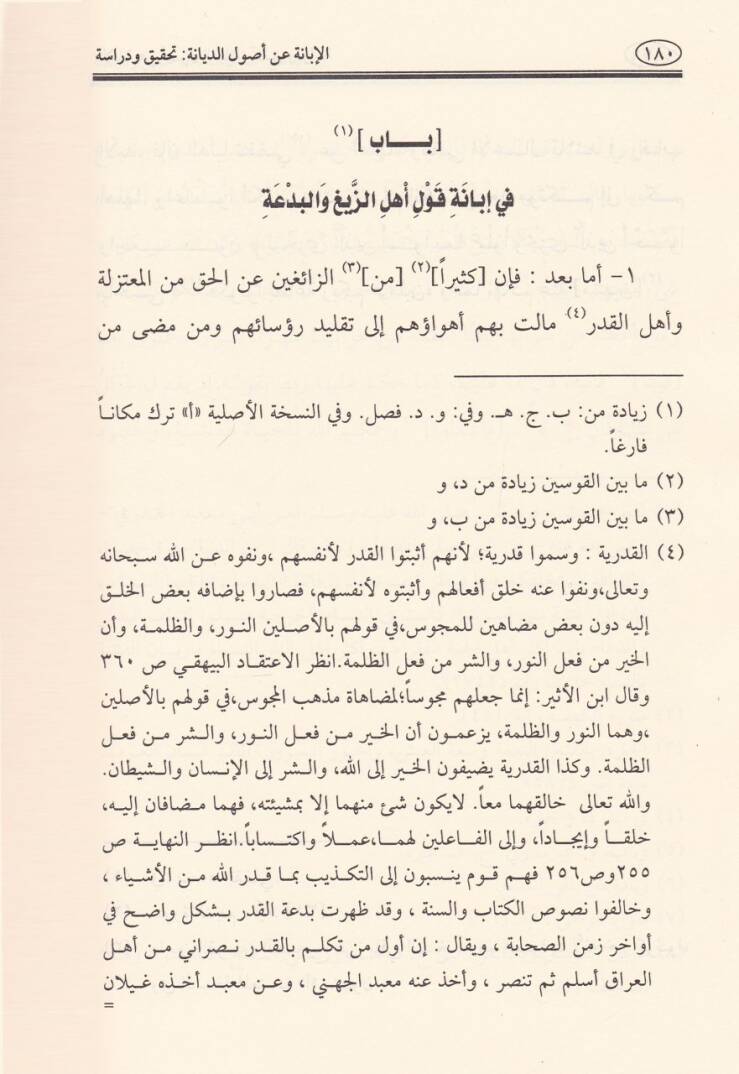 ١٨٠ الإبانة عن أصول الديانة: تحقيق ودراسة
[ بـــاب ](١)
في إبانَةِ قَوْلِ أهلِ الزَّيغِ وَالبدْعَةِ
١- أما بعد : فإن [كثيراً](٢) [من](٣) الزائغين عن الحق من المعتزلة
وأهل القدر(٤) مالت بهم أهواؤهم إلى تقليد رؤسائهم ومن مضى من
(١) زيادة من: ب. ج. هـ. وفي: و. د. فصل. وفي النسخة الأصلية «أ» ترك مكاناً
فارغاً.
(٢) ما بين القوسين زيادة من د، و
(٣) ما بين القوسين زيادة من ب، و
(٤) القدرية : وسموا قدرية؛ لأنهم أثبتوا القدر لأنفسهم ،ونفوه عن الله سبحانه
وتعالى،ونفوا عنه خلق أفعالهم وأثبتوه لأنفسهم، فصاروا بإضافه بعض الخلق
إليه دون بعض مضاهين للمجوس،في قولهم بالأصلين النور، والظلمة، وأن
الخير من فعل النور، والشر من فعل الظلمة.انظر الاعتقاد البيهقي ص ٣٦٠
وقال ابن الأثير: إنما جعلهم مجوساً؛لمضاهاة مذهب المجوس،في قولهم بالأصلين
،وهما النور والظلمة، يزعمون أن الخير من فعل النور، والشر من فعل
الظلمة. وكذا القدرية يضيفون الخير إلى الله، والشر إلى الإنسان والشيطان.
والله تعالى خالقهما معاً. لايكون شئ منهما إلا بمشيئته، فهما مضافان إليه،
خلقاً وإيجاداً، وإلى الفاعلين لهما،عملاً واكتساباً.انظر النهاية ص
٢٥٥وص٢٥٦ فهم قوم ينسبون إلى التكذيب بما قدر الله من الأشياء ،
وخالفوا نصوص الكتاب والسنة ، وقد ظهرت بدعة القدر بشكل واضح في
أواخر زمن الصحابة ، ويقال : إن أول من تكلم بالقدر نصراني من أهل
العراق أسلم ثم تنصر ، وأخذ عنه معبد الجهني ، وعن معبد أخذه غيلان
=